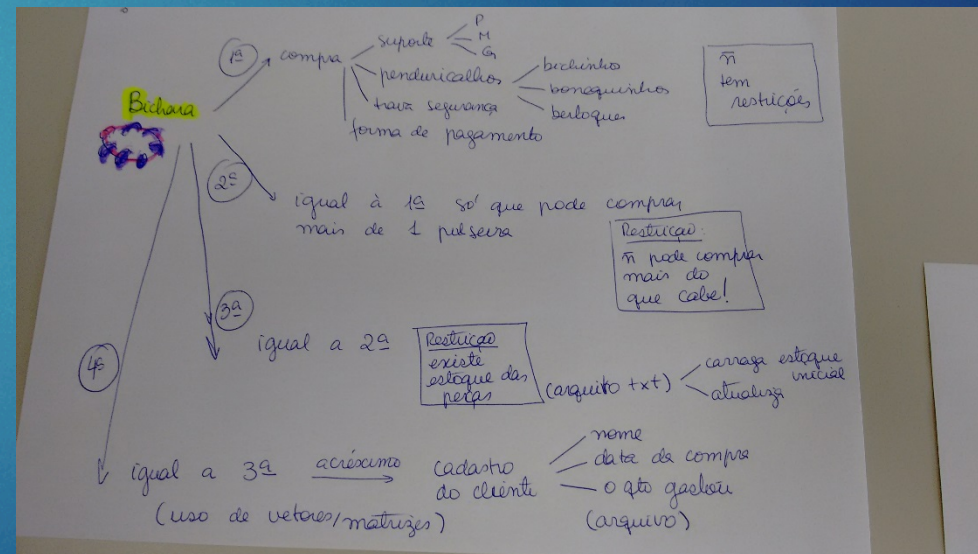 Bichara
1ª
compra
suporte
P
M
G
penduricalhos
bichinho
bonequinhos
berloques
trava segurança
forma de pagamento
ñ
tem
restrições
2ª
igual à 1ª só que pode comprar
mais de 1 pulseira
Restrição:
ñ pode comprar
mais do
que cabe!
3ª
igual a 2ª
Restrição
existe
estoque das
peças
(arquivo txt)
carrega estoque
inicial
atualiza
4ª
igual a 3ª
acréscimo
cadastro
do cliente
nome
data da compra
o qto gastou
(uso de vetores/matrizes)
(arquivo)